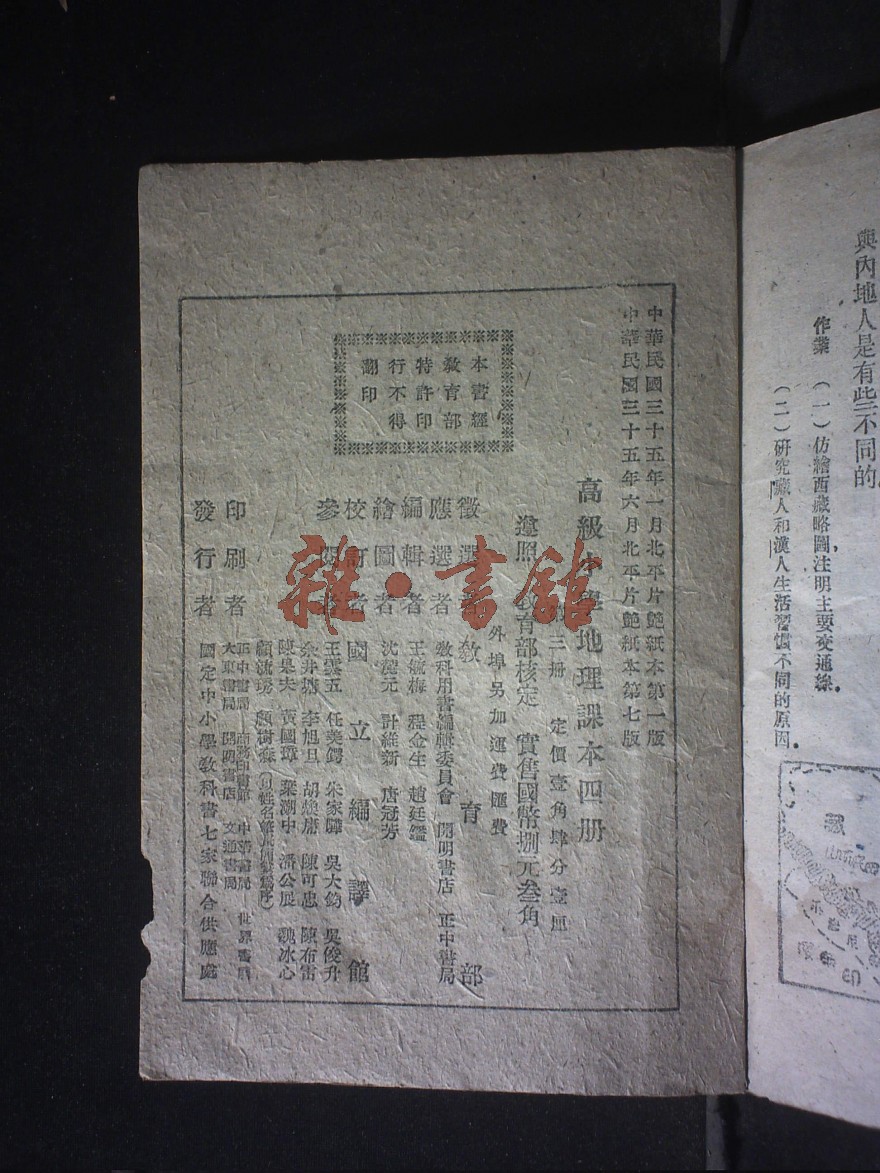 與內地人是有些不同的。
作業 （一）仿繪西藏略圖，注明主要交通線。
（二）研究藏人和漢人生活習慣不同的原因。
中華民國三十五年一月北平片艶紙本第一版
中華民國三十五年六月北平片艶紙本第七版
高級小學地理課本四册
第三册 定價壹角肆分壹厘
遵照教育部核定 實售國幣捌元叁角
外埠另加運費匯費
本書經
教育部
特許印
行不得
翻印
徵選者 教育部
應選者 教科用書編輯委員會 開明書店 正中書局
編輯者 王毓梅 程金生 趙廷鑑
繪圖者 沈麓元 計維新 唐冠芳
校訂者 國立編譯館
參閱者 王雲五 任美鍔 朱家驊 吳大鈞 吳俊升
余井塘 李旭旦 胡煥庸 陳可忠 陳布雷
陳果夫 黃國璋 葉溯中 潘公展 魏冰心
顧樹森 （以姓名筆劃多寡爲序）
印刷者 正中書局 商務印書館 中華書局 世界書局
大東書局 開明書店 文通書局
發行者 國定中小學教科書七家聯合供應處
雜·書館